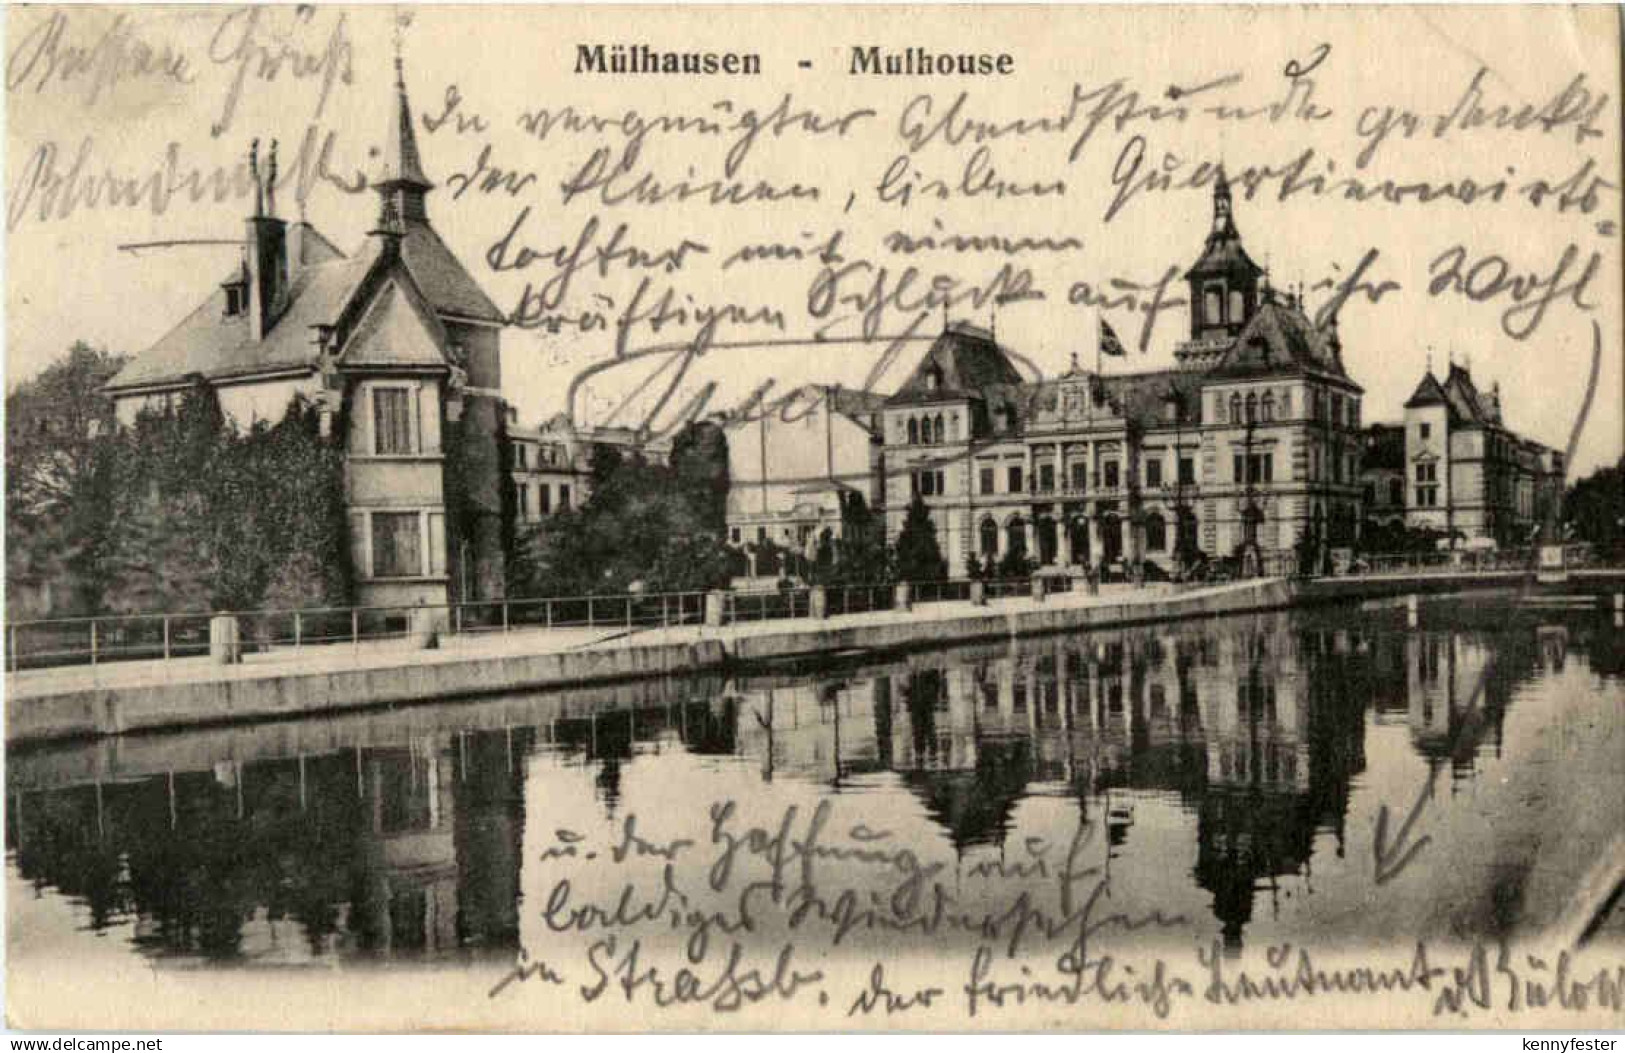 Mülhausen - Mulhouse
Besten Gruß
In vergnügter Abendstunde gedenkt
der kleinen, lieben Quartierwirts-
tochter mit einem
kräftigen Schluck auf ihr Wohl
u. der Hoffnung auf
baldiges Wiedersehen
in Straßb. der friedliche Leutnant v. Bülow
delcampe.net
kennyfester